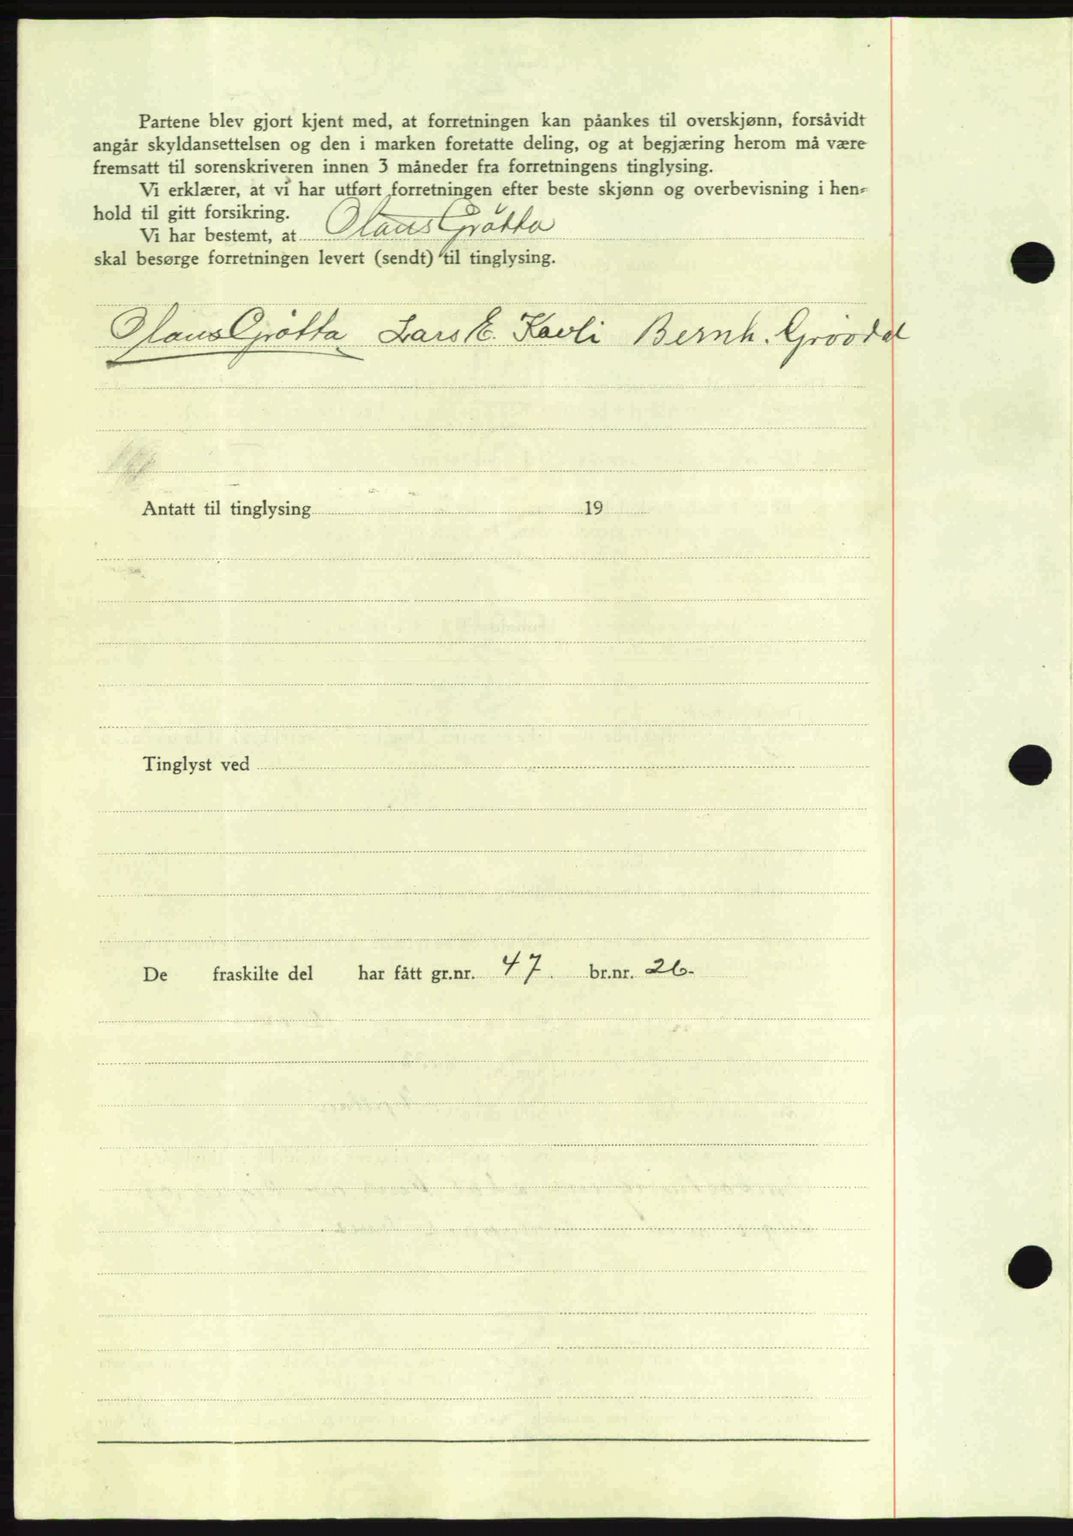 Partene blev gjort kjent med, at forretningen kan påankes til overskjønn, forsåvidt
angår skyldansettelsen og den i marken foretatte deling, og at begjæring herom må være
fremsatt til sorenskriveren innen 3 måneder fra forretningens tinglysing.
Vi erklærer, at vi har utført forretningen efter beste skjønn og overbevisning i hen-
hold til gitt forsikring.
Vi har bestemt, at Olaus Grøtta
skal besørge forretningen levert (sendt) til tinglysing.
Olaus Grøtta Lars E. Kavli Bernh. Grøvdal
Antatt til tinglysing 19
Tinglyst ved
De fraskilte del har fått gr.nr. 47. br.nr. 26.